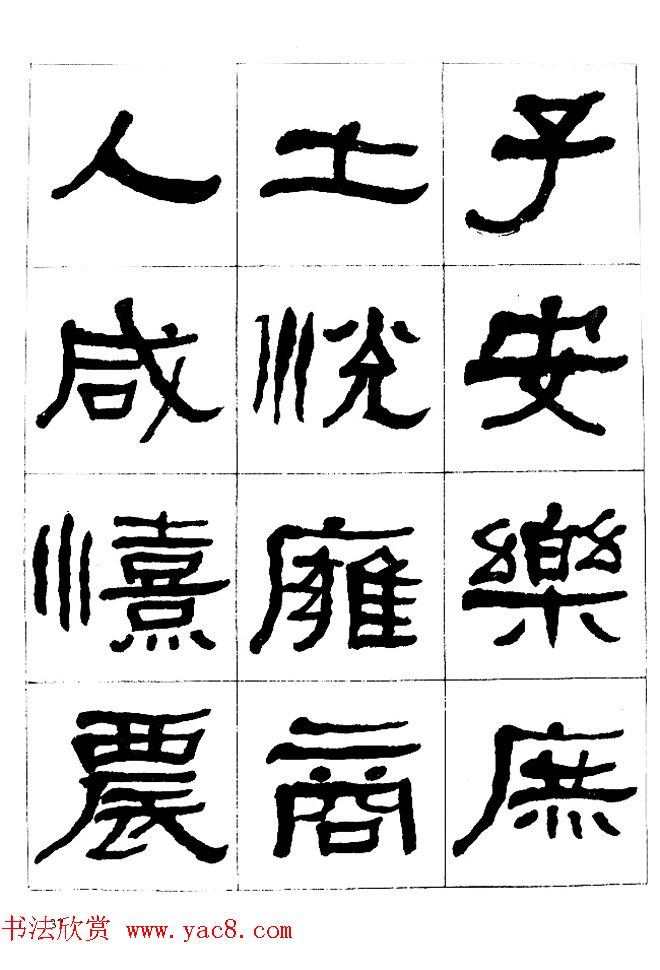 子安樂庶
士悅雍商
人咸憘農
书法欣赏 www.yac8.com